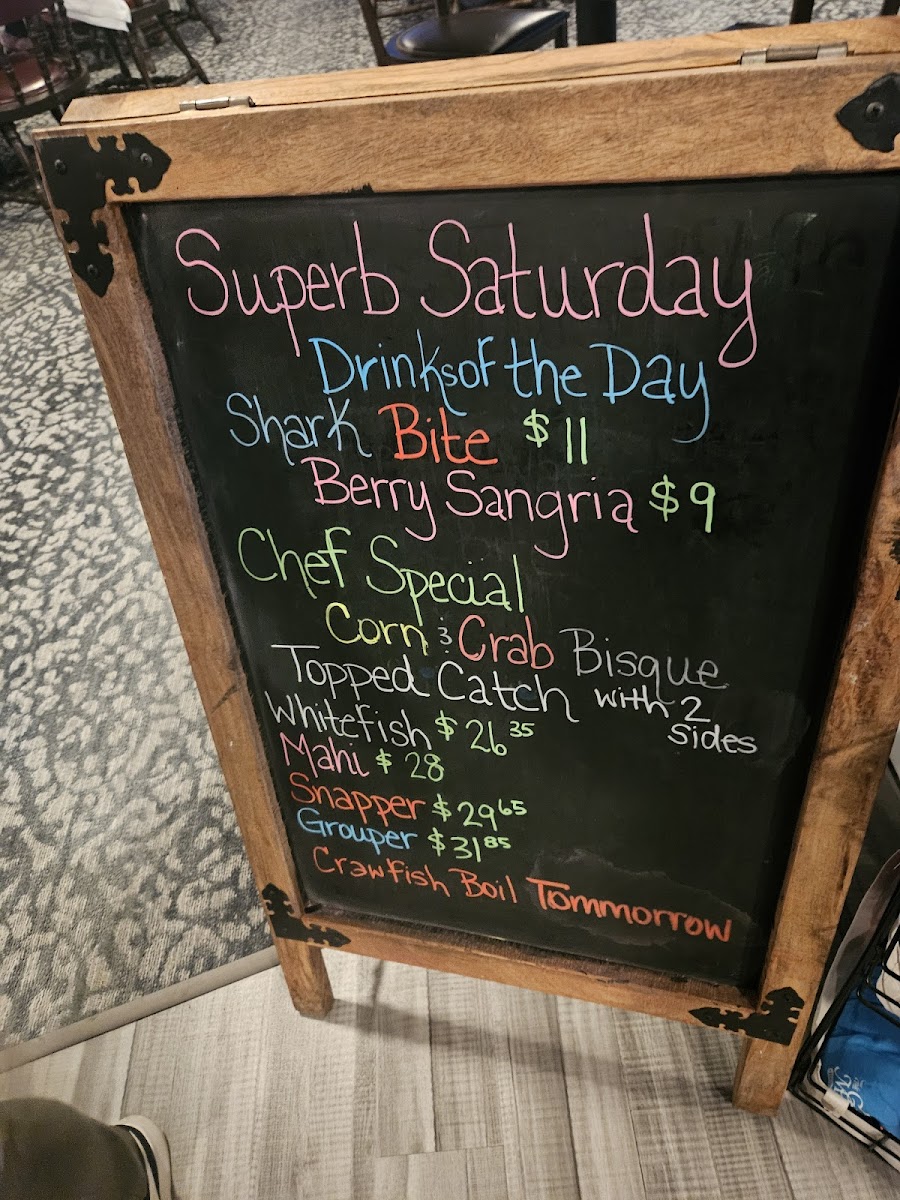 Superb Saturday
Drinks of the Day
Shark Bite $11
Berry Sangria $9
Chef Special
Corn & Crab Bisque
Topped Catch with 2 sides
Whitefish $26 35
Mahi $28
Snapper $29 65
Grouper $31 85
Crawfish Boil Tommorrow